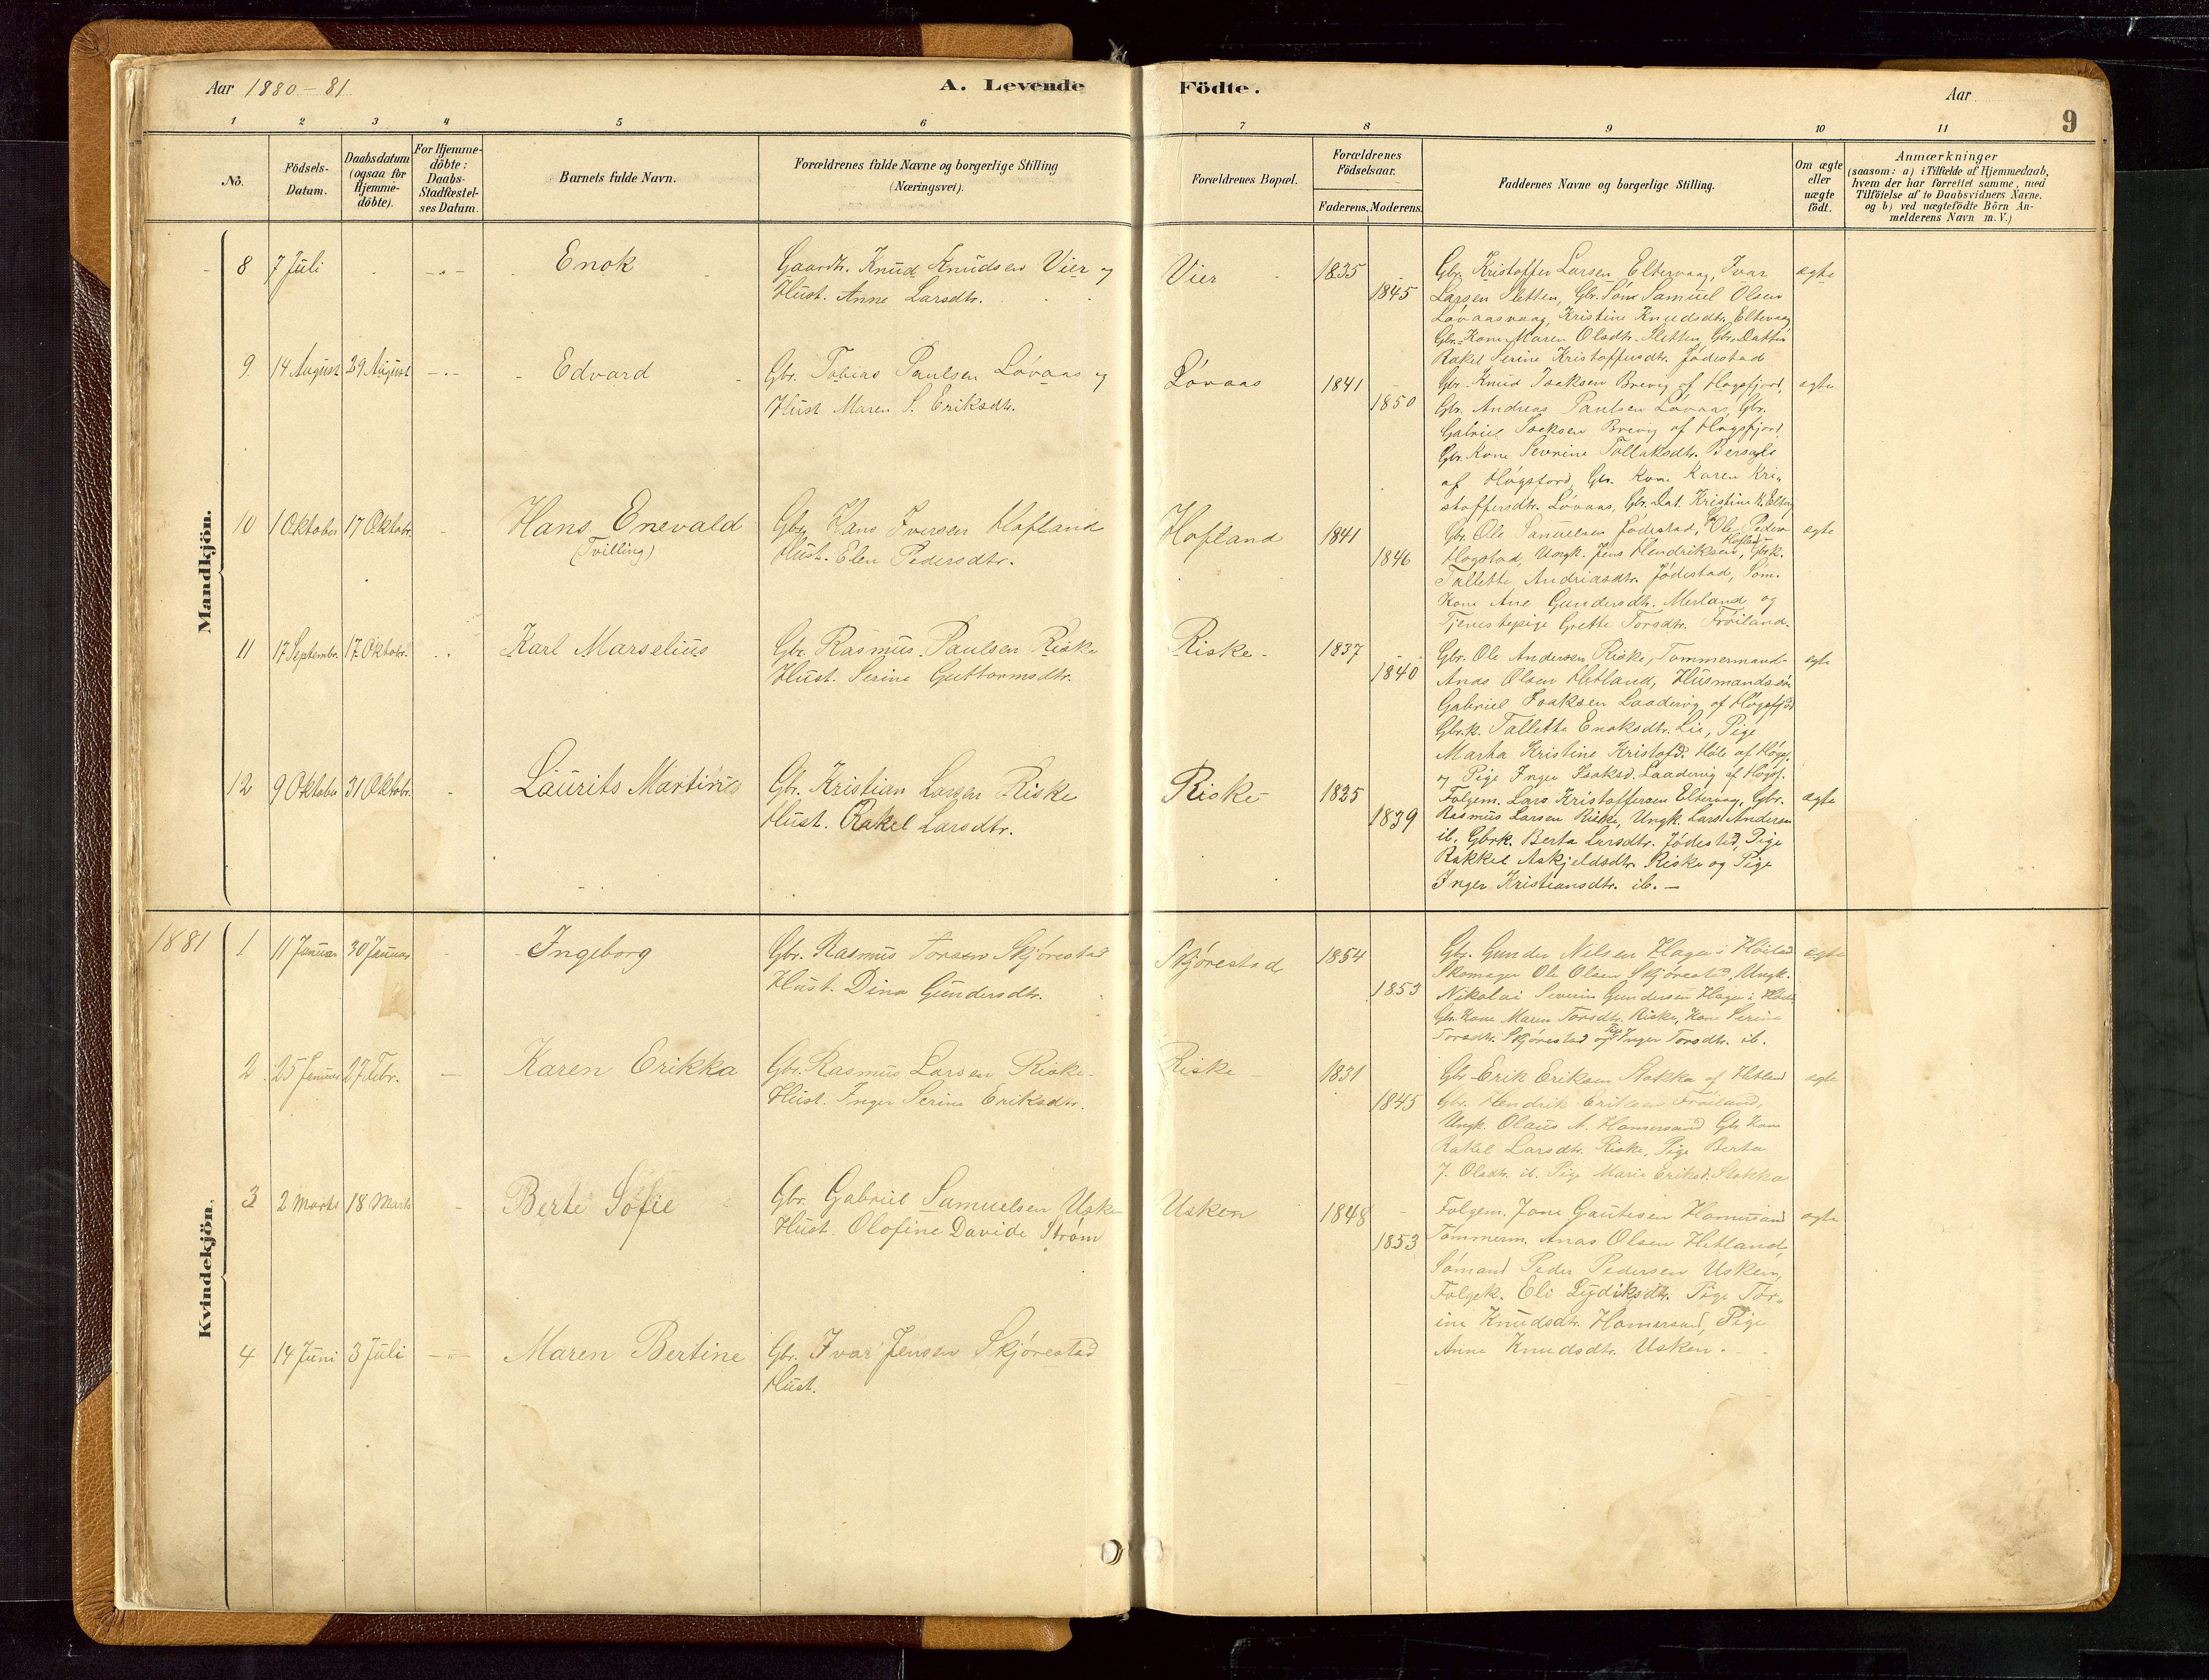 Aar 1880-81
A. Levende
Födte.
Aar
9
1 2 3 4 5 6 7 8 9 10 11
No.
Födsels-Datum.
Daabsdatum (ogsaa for Hjemme-döbte).
For Hjemme-döbte: Daabs-Stadfæstel-ses Datum.
Barnets fulde Navn.
Forældrenes fulde Navne og borgerlige Stilling (Næringsvei).
Forældrenes Bopæl.
Forældrenes Födselsaar.
Faderens. Moderens.
Faddernes Navne og borgerlige Stilling.
Om ægte eller uægte födt.
Anmærkninger
(saasom: a) i Tilfælde af Hjemmedaab,
hvem der har forrettet samme, med
Tilföielse af to Daabsvidners Navne.
og b) ved uægtefödte Börn An-
melderens Navn m. V.)
Mandkjön.
8 7 Juli Enok
Gaardb. Knud Knudsen Vier og
Hust. Anne Larsdtr.
Vier 1835 1845
Gbr. Kristoffer Larsen Eltervaag, Ivar
Larsen Sletten, Gbr. Søn Samuel Olsen
Løvaasvaag, Kristine Knudsdtr. Eltevaag
Gbr. Kone Maren Olsdtr. Sletten, Gbr. Datter
Rakel Serine Kristoffersdtr. Jødestad
ægte
9. 14 August 29 August Edvard
Gbr. Tobias Paulsen Løvaas og
Hust. Maren S. Eriksdtr.
Løvaas 1841 1850
Gbr. Knud Isaksen Brevig af Høgsfjord,
Gbr. Andreas Paulsen Løvaas, Gbr.
Gabriel Isaksen Brevig af Høgsfjord
Gbr. Kone Severine Tollaksdtr.
af Høgsfjord, Gbr. Kone Karen Kri-
stoffersdtr. Løvaas, Gbr. Dat. Kristine K.
ægte
10 1 Oktober 17 Oktobr. Hans Enevald
(Tvilling)
Gbr. Hans Iversen Hofland
Hust. Elen Pedersdtr.
Hofland 1841 1846
Gbr. Ole Samuelsen Jødestad, Ole Peders.
Hogstad, Ungk. Jens Hendriksen Hofland, Gbrk.
Tallette Andriasdtr. Jødestad, Søm.
Kone Ane Gundersdtr. Merland og
Tjenestepige Grette Torsdtr. Frøiland.
ægte
11 17 Septembr. 17 Oktobr. Karl Marselius
Gbr. Rasmus Paulsen Riske
Hust. Serine Guttormsdtr.
Riske 1837 1840
Gbr. Ole Andersen Riske, Tømmermand
Anas Olsen Hetland, Husmandsøn
Gabriel Isaksen Laadevig af Høgsfjord
Gbr.k. Tallette Enoksdtr. Lie, Pige
Marta Kristine Kristofd. Høle af Høgsf.
og Pige Inger Isaksd. Laadevig af Høgsf.
ægte
12 9 Oktober 31 Oktobr. Laurits Martinus
Gbr. Kristian Larsen Riske
Hust. Rakel Larsdtr.
Riske 1835 1839
Følgem. Lars Kristoffersen Eltervaag, Gbr.
Rasmus Larsen Riske, Ungk. Lars Andersen
ib. Gbrk. Berta Larsdtr. Jødestad, Pige
Rakkel Askjeldsdtr. Riske og Pige
Inger Kristiansdtr. ib. —
ægte
Kvindekjön.
1881 1 11 Januar 30 Januar Ingeborg
Gbr. Rasmus Torsen Skjørestad
Hust. Dina Gundersdtr.
Skjørestad 1854 1853
Gbr. Gunder Nilsen Hage i Høiland
Skomager Ole Olsen Skjørestad, Ungk.
Nikolai Severin Gundersen Hage i
Gbr. Kone Maren Torsdtr. Riske, Kone Serine
Torsdtr. Skjørestad og Pige Inger Torsdtr. ib.
ægte
2 25 Januar 27 Febr. Karen Erikka
Gbr. Rasmus Larsen Riske.
Hust. Inger Serine Eriksdtr.
Riske 1831 1845
Gbr. Erik Eriksen Stokka af Hetland
Gbr. Hendrik Eriksen Frøiland,
Ungk. Olaus A. Hamersand Gbr. Kone
Rakel Larsdtr. Riske, Pige Berta
J. Olsdtr. ib. Pige Maria Eriksd. Stokka
ægte
3 2 Marts 18 Marts Berte Sofie
Gbr. Gabriel Samuelsen Usken
Hust. Olofine Davide Strøm
Usken 1848 1853
Følgem. Jone Gautesen Hamersand
Tømmerm. Anas Olsen Hetland,
Sømand Peder Pedersen Usken,
Følgek. Eli Lydiksdtr. Pige Tor-
ine Knudsdtr. Hamersand, Pige
Anne Knudsdtr. Usken.
ægte
4 14 Juni 3 Juli Maren Bertine
Gbr. Ivar Jensen Skjørestad
Hust.